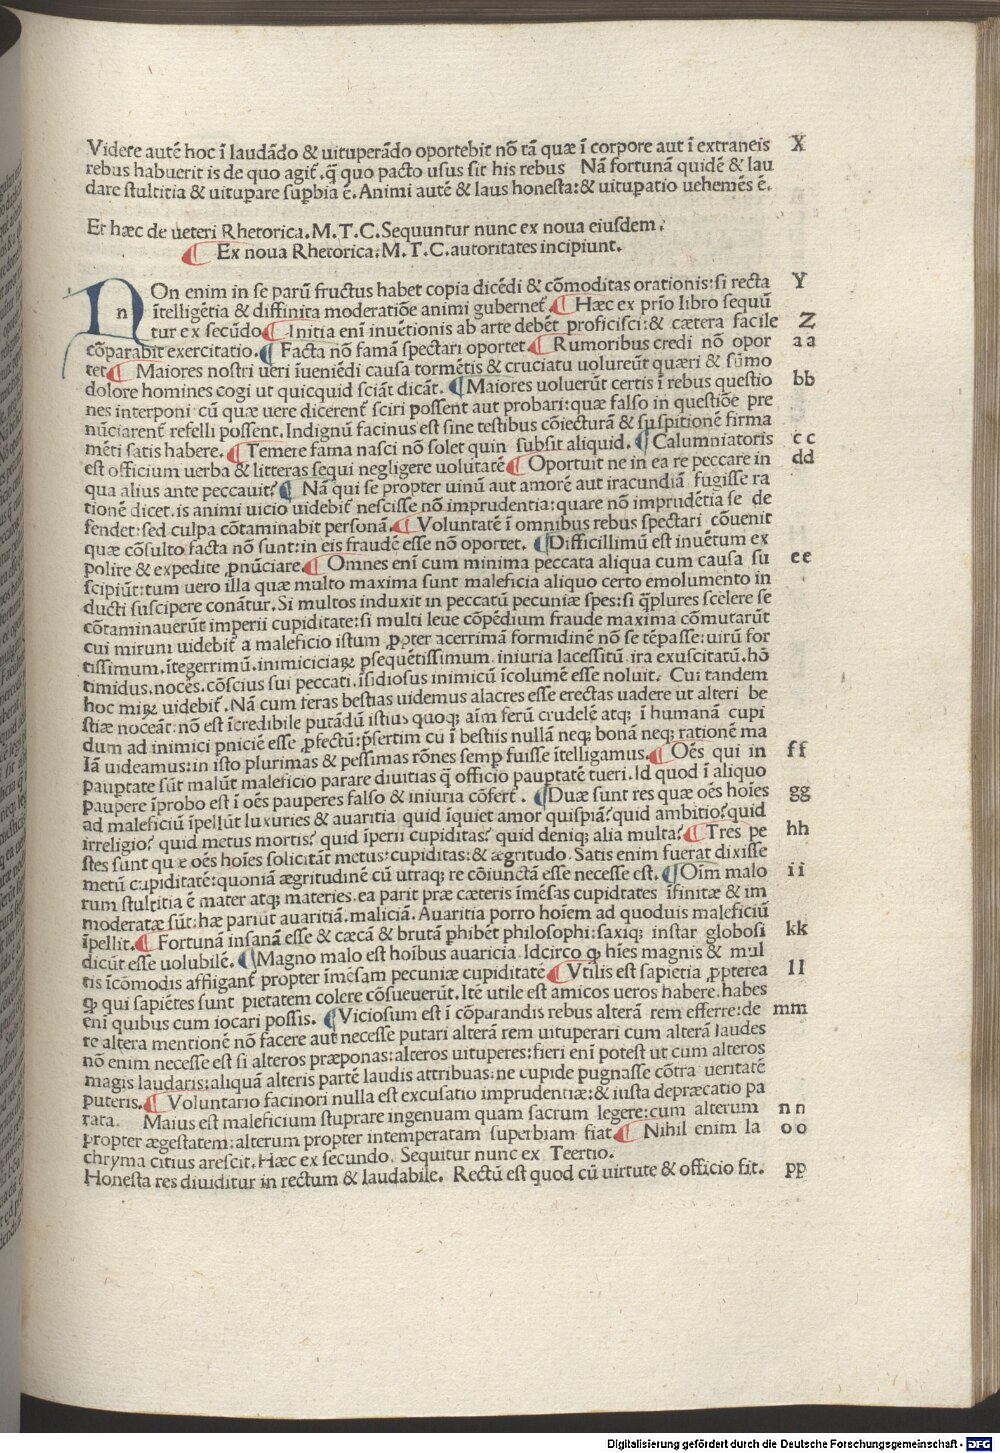 Videre autē hoc ī laudādo & uituperādo oportebit nō tā quæ ī corpore aut ī extraneis X
rebus habuerit is de quo agit̄. q̄ quo pacto usus sit his rebus Nā fortunā quidē & lau
dare stultitia & uitupare supbia ē. Animi autē & laus honesta:& uitupatio uehemēs ē.
Et hæc de ueteri Rhetorica. M. T. C. Sequuntur nunc ex noua eiusdem.
¶ Ex noua Rhetorica. M. T. C. autoritates incipiunt.
NOn enim in se parū fructus habet copia dicēdi & cōmoditas orationis:si recta Y
ītelligētia & diffinita moderatiōe animi gubernet̄. ¶ Hæc ex prīo libro sequū
tur ex secūdo ¶ Initia enī inuētionis ab arte debēt proficisci:& cætera facile Z
cōparabit exercitatio. ¶ Facta nō famā spectari oportet ¶ Rumoribus credi nō opor aa
tet ¶ Maiores nostri ueri īueniēdi causa tormētis & cruciatu uolureūt quæri & sūmo
dolore homines cogi ut quicquid sciāt dicāt. ¶ Maiores uoluerūt certis ī rebus questio bb
nes interponi cū quæ uere dicerent̄ sciri possent aut probari:quæ falso in questiōe pre
nūciarent̄ refelli possent. Indignū facinus est sine testibus cōiecturā & suspitionē firma
mēti satis habere. ¶ Temere fama nasci nō solet quin subsit aliquid. ¶ Calumniatoris cc
est officium uerba & litteras sequi negligere uolūtatē ¶ Oportuit ne in ea re peccare in dd
qua alius ante peccauit? ¶ Nā qui se propter uinū aut amorē aut iracundiā fugisse ra
tionē dicet. is animi uicio uidebit̄ nescisse nō imprudentia:quare nō imprudētia se de
fendet:sed culpa cōtaminabit personā. ¶ Voluntatē ī omnibus rebus spectari cōuenit
quæ cōsulto facta nō sunt:in eis fraudē esse nō oportet. ¶ Difficillimū est inuētum ex
polire & expedite ꝓnūciare. ¶ Omnes enī cum minima peccata aliqua cum causa su ee
scipiūt:tum uero illa quæ multo maxima sunt maleficia aliquo certo emolumento in
ducti suscipere conātur. Si multos induxit in peccatū pecuniæ spes:si q̄plures scelere se
cōtaminauerūt imperii cupiditate:si multi leue cōpēdium fraude maxima cōmutarūt
cui mirum uidebit̄ a maleficio istum ꝓpter acerrimā formidinē nō se tēpasse:uirū for
tissimum. ītegerrimū. inimiciciaꝝ psequētissimum iniuria lacessitū ira exuscitatū. hō
timidus. nocēs. cōscius sui peccati. īsidiosus inimicū īcolumē esse noluit. Cui tandem
hoc miꝝ uidebit̄. Nā cum feras bestias uidemus alacres esse erectas uadere ut alteri be
stiæ noceāt: nō est īcredibile putādū istius quoq; aīm ferū crudelē atq; ī humanā cupi
dum ad inimici pniciē esse ꝓfectū:p̄sertim cū ī bestiis nullā neq; bonā neq; rationē ma
lā uideamus:in isto plurimas & pessimas rōnes semp fuisse ītelligamus. ¶ Oēs qui in ff
pauptate sūt malūt maleficio parare diuitias q̄ officio pauptatē tueri. Id quod ī aliquo
paupere īprobo est ī oēs pauperes falso & iniuria cōfert̄. ¶ Duæ sunt res quæ oēs hoīes gg
ad maleficiū īpellūt luxuries & auaritia quid īquiet amor quispiā? quid ambitio? quid
irreligio? quid metus mortis? quid īperii cupiditas? quid deniq; alia multa? ¶ Tres pe hh
stes sunt quæ oēs hoīes solicitāt metus:cupiditas:& ægritudo. Satis enim fuerat dixisse
metū cupiditatē:quoniā ægritudinē cū utraq; re cōiunctā esse necesse est. ¶ Oīm malo ii
rum stultitia ē mater atq; materies. ea parit præ cæteris īmēsas cupidtates īfinitæ & im
moderatæ sūt: hæ pariūt auaritiā. maliciā. Auaritia porro hoīem ad quoduis maleficiū
īpellit. ¶ Fortunā insanā esse & cæcā & brutā phibēt philosophi:saxiq; instar globosi kk
dicūt esse uolubilē. ¶ Magno malo est hoībus auaricia Idcirco ꝙ hīes magnis & mul
tis īcōmodis affligant̄ propter īmēsam pecuniæ cupiditatē ¶ Vtilis est sapiētia ꝓpterea ll
ꝙ qui sapiētes sunt pietatem colere cōsueuerūt. Itē utile est amicos ueros habere. habes
enī quibus cum iocari possis. ¶ Viciosum est ī cōparandis rebus alterā rem efferre:de mm
re altera mentionē nō facere aut necesse putari alterā rem uituperari cum alterā laudes
nō enim necesse est si alteros præponas:alteros uituperes:fieri enī potest ut cum alteros
magis laudaris:aliquā alteris partē laudis attribuas:ne cupide pugnasse cōtra ueritatē
puteris. ¶ Voluntario facinori nulla est excusatio imprudentiæ:& iusta depræcatio pa
rata. Maius est maleficium stuprare ingenuam quam sacrum legere:cum alterum nn
propter ægestatem:alterum propter intemperatam superbiam fiat ¶ Nihil enim la oo
chryma citius arescit. Hæc ex secundo. Sequitur nunc ex Teertio.
Honesta res diuiditur in rectum & laudabile. Rectū est quod cū uirtute & officio fit. pp
Digitalisierung gefördert durch die Deutsche Forschungsgemeinschaft - DFG